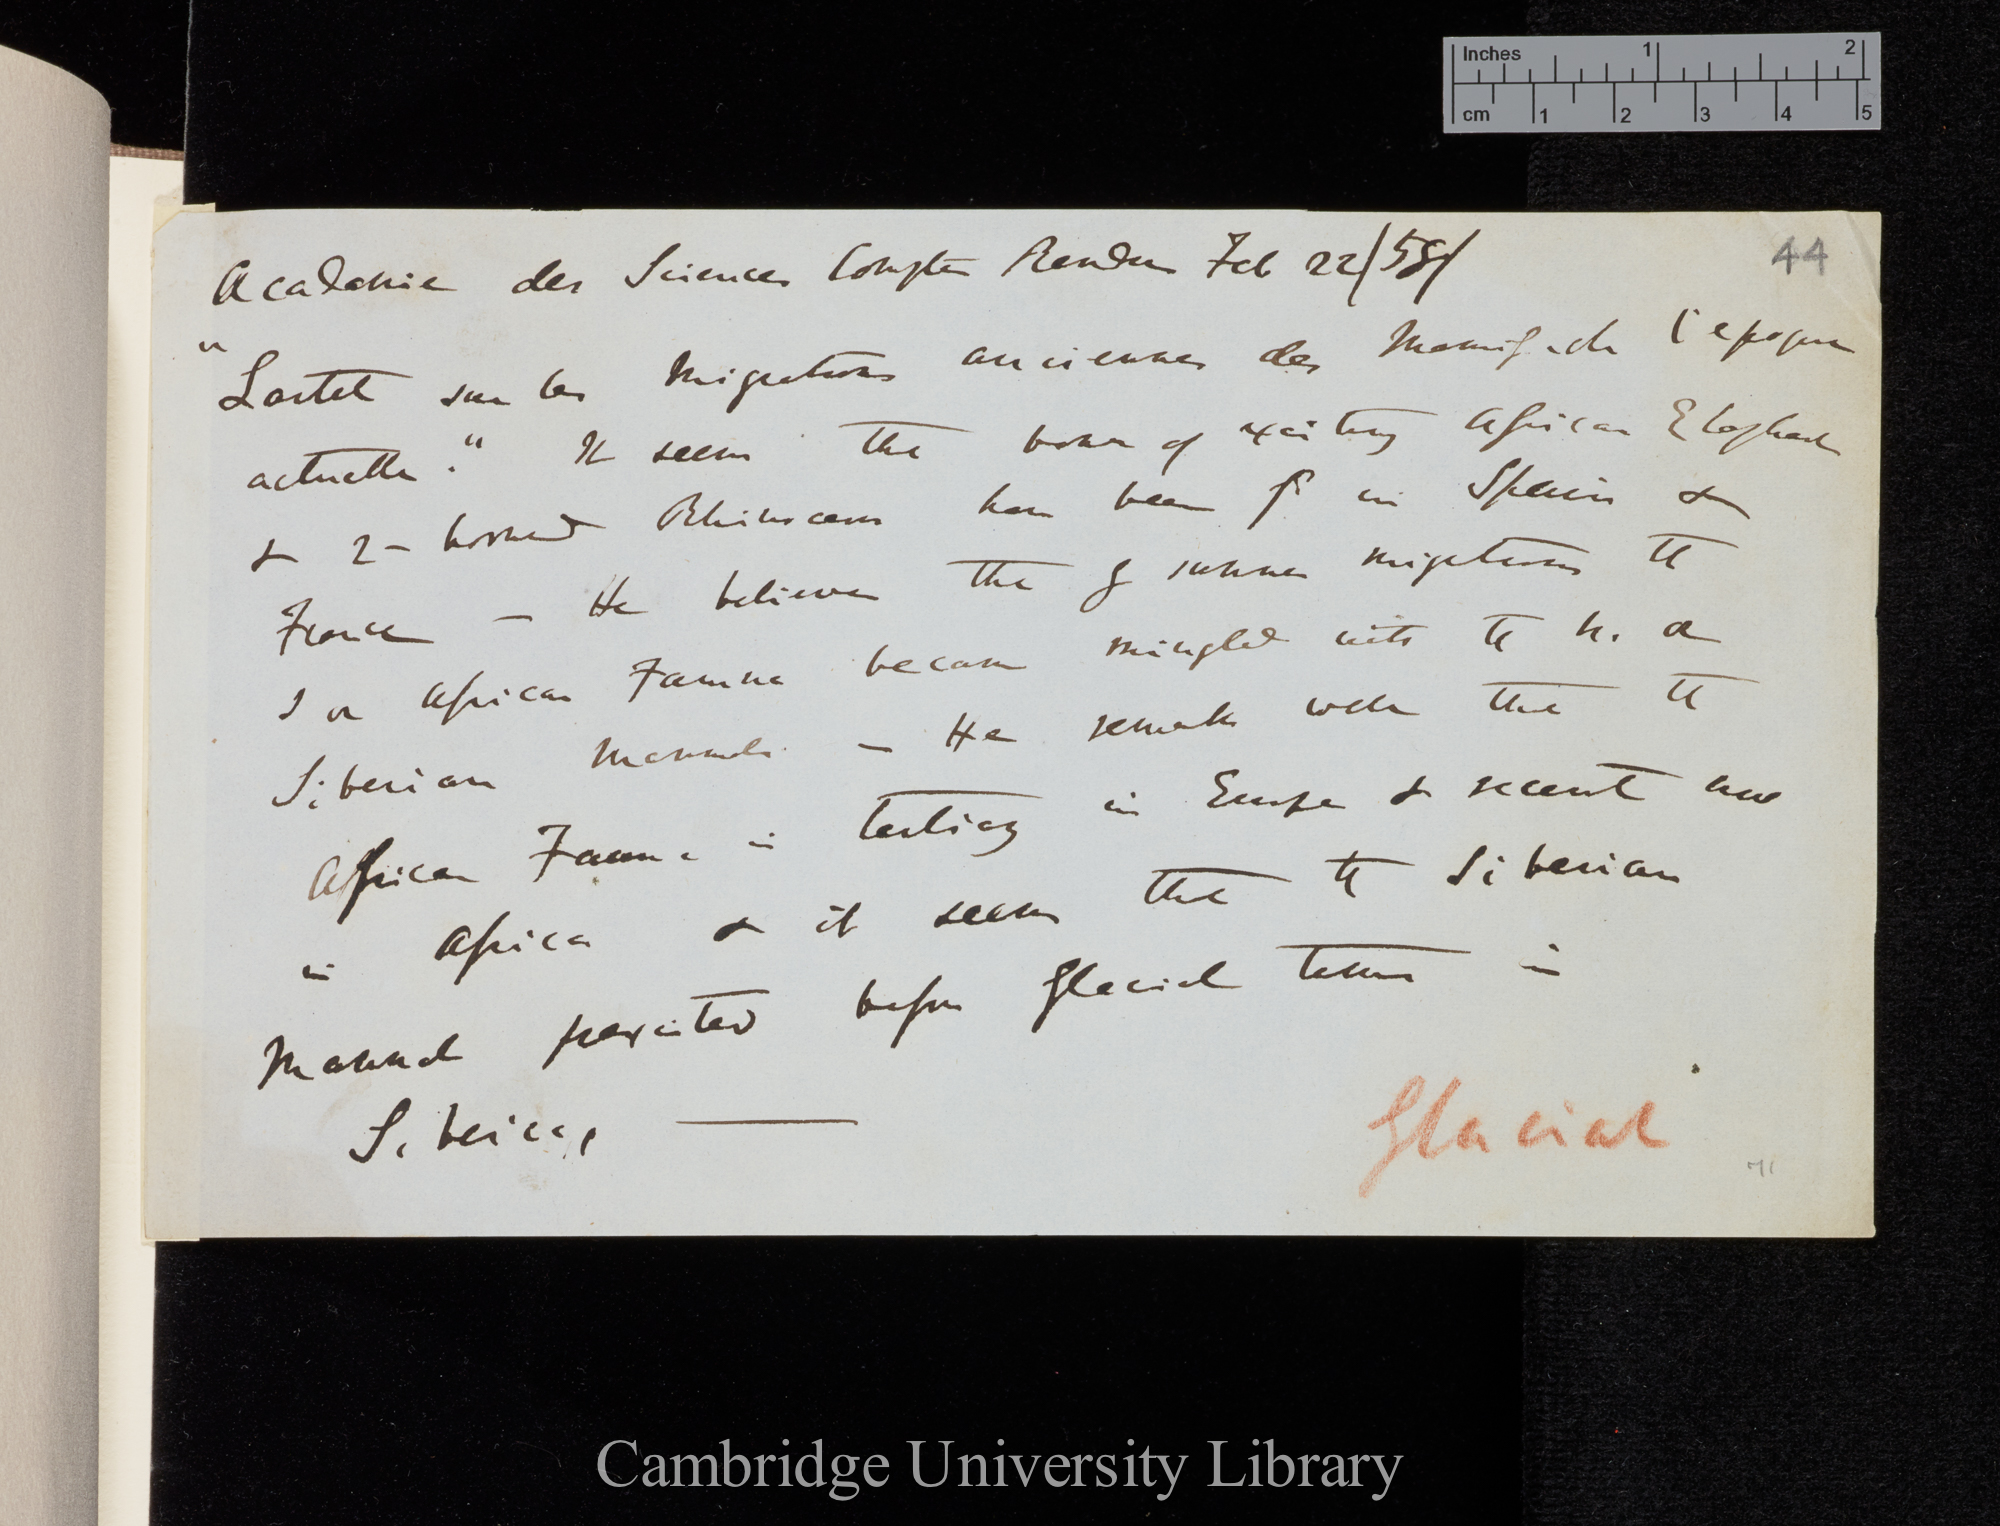 Inches 1 2
cm 1 2 3 4 5
44
Academie des Sciences Comptes Rendus Feb 22/58/
"Lartet sur les Migrations anciennes des Mammif de l'epoque
actuelle." It seems that bones of existing African Elephant
& 2-horned Rhinoceros have been f in Spain &
France — He believes that by summer migrations the
S or African Fauna became mingled with the N. or
Siberian Mammals — He remarks well that the
African Fauna in tertiary in Europe & recent now
in Africa & it seems that the Siberian
Mammal existed before Glacial times in
Siberia,
Glacial
71
Cambridge University Library